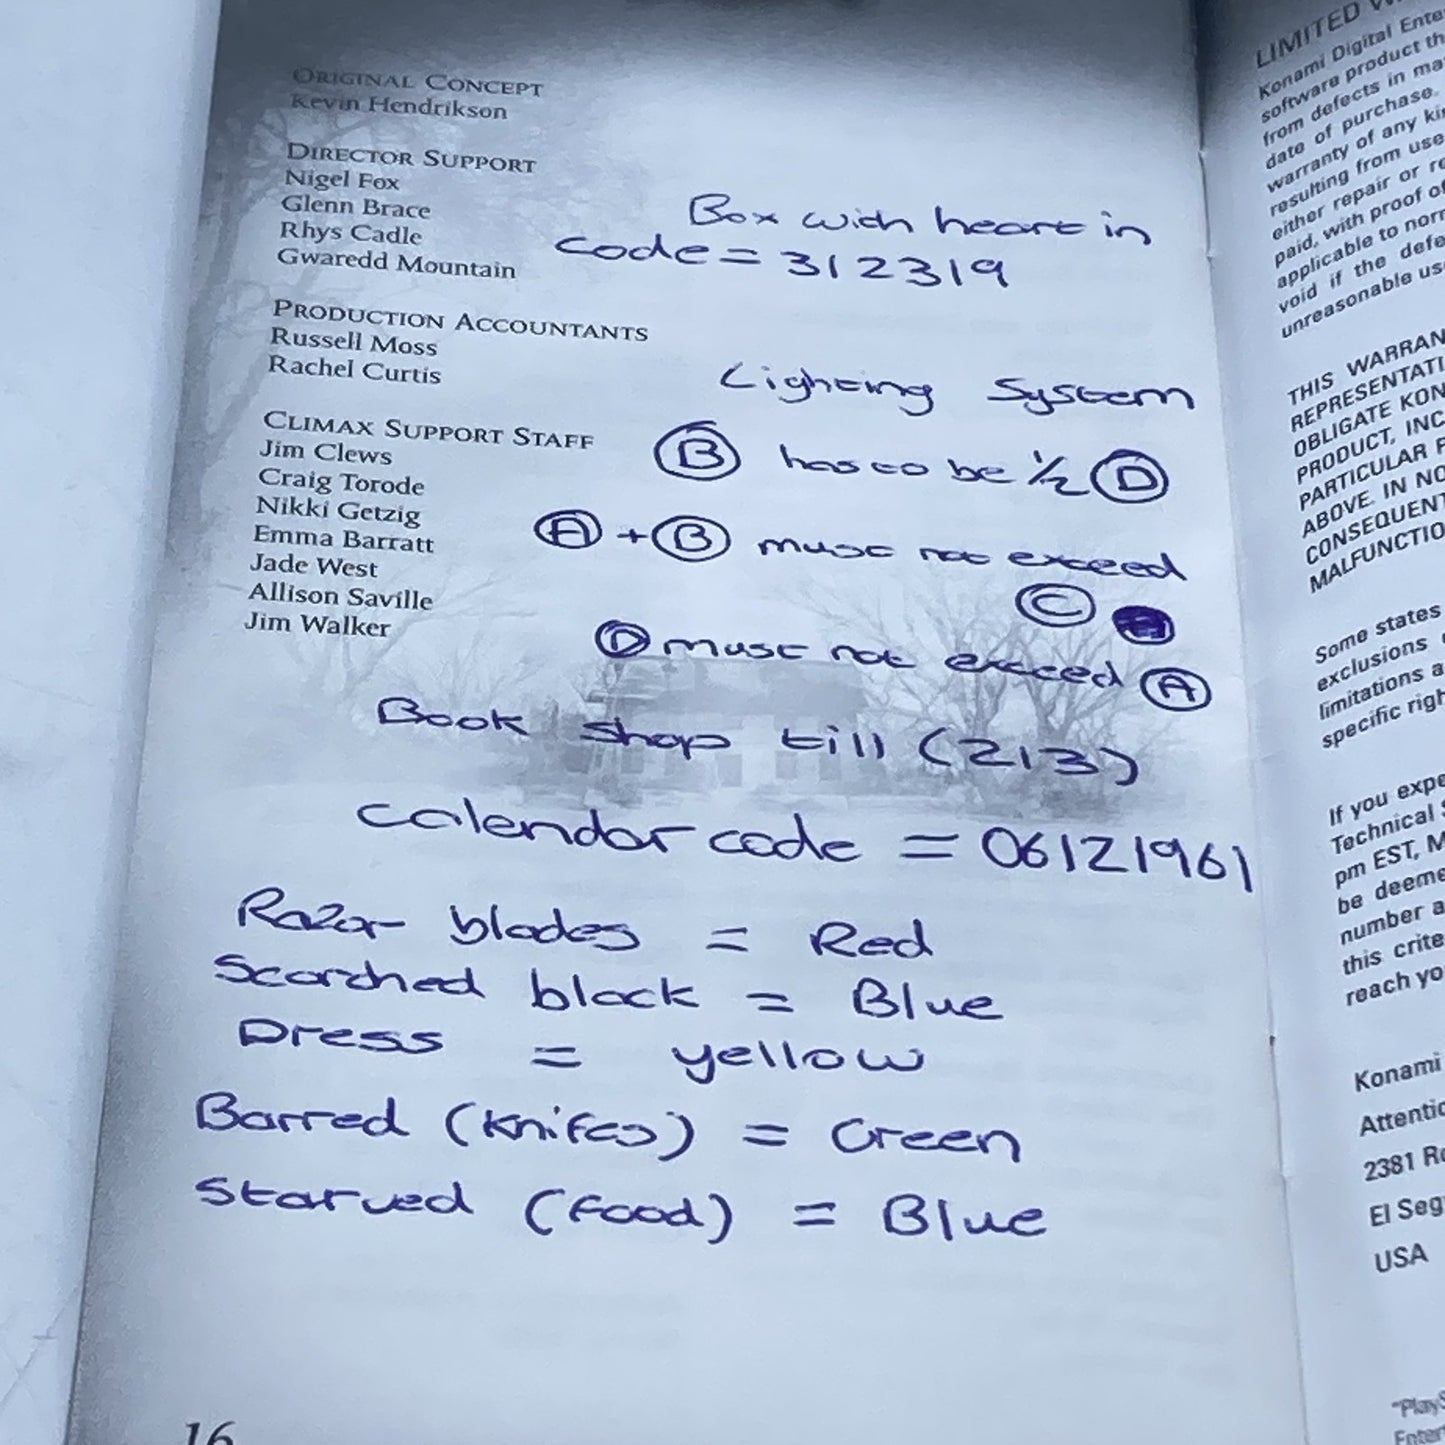 ORIGINAL CONCEPT
Kevin Hendrikson
DIRECTOR SUPPORT
Nigel Fox
Glenn Brace
Rhys Cadle
Gwaredd Mountain
PRODUCTION ACCOUNTANTS
Russell Moss
Rachel Curtis
CLIMAX SUPPORT STAFF
Jim Clews
Craig Torode
Nikki Getzig
Emma Barratt
Jade West
Allison Saville
Jim Walker
Box with heart in
code = 312319
Lighting System
B has to be 1/2 D
A + B must not exceed
C
D must not exceed A
Book shop till (213)
calendar code = 06121961
Razor blades = Red
Scorched block = Blue
Dress = yellow
Barred (knifes) = Green
Starved (food) = Blue
16
LIMITED
Konami Digital
software product
from defects in
date of purchase.
warranty of any
resulting from use
either repair or
paid, with proof of
applicable to
void if the
unreasonable
THIS
OBLIGATE
PRODUCT, INC
PARTICULAR
ABOVE. IN NO
Some states
exclusions
limitations
specific
If you
Technical
pm EST,
be
number
this
reach
Konami
2381
El
USA